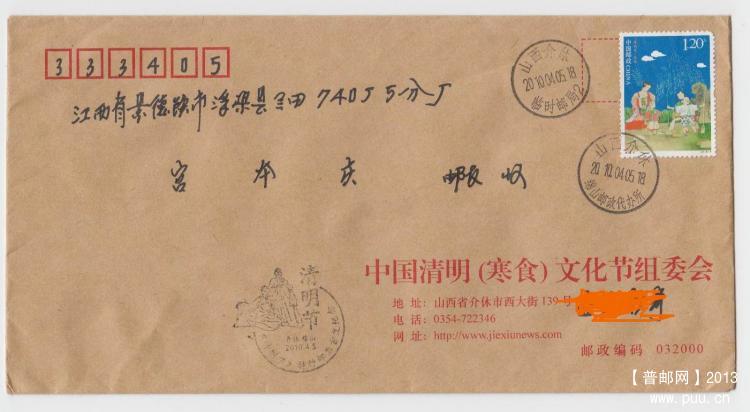 333405
江西省景德镇市浮梁县三田740厂5分厂
宫本庆 邮友收
山西介休
2010.04.05.18
临时邮局2
中国邮政 CHINA
1.20
山西介休
2010.04.05.18
绵山邮政代办所
清明节
2010.4.5
中国清明(寒食)文化节组委会
地 址:山西省介休市西大街139号
电 话:0354-722346
网 址:http://www.jiexiunews.com
邮政编码 032000
【普邮网】2013
www.puu.cn